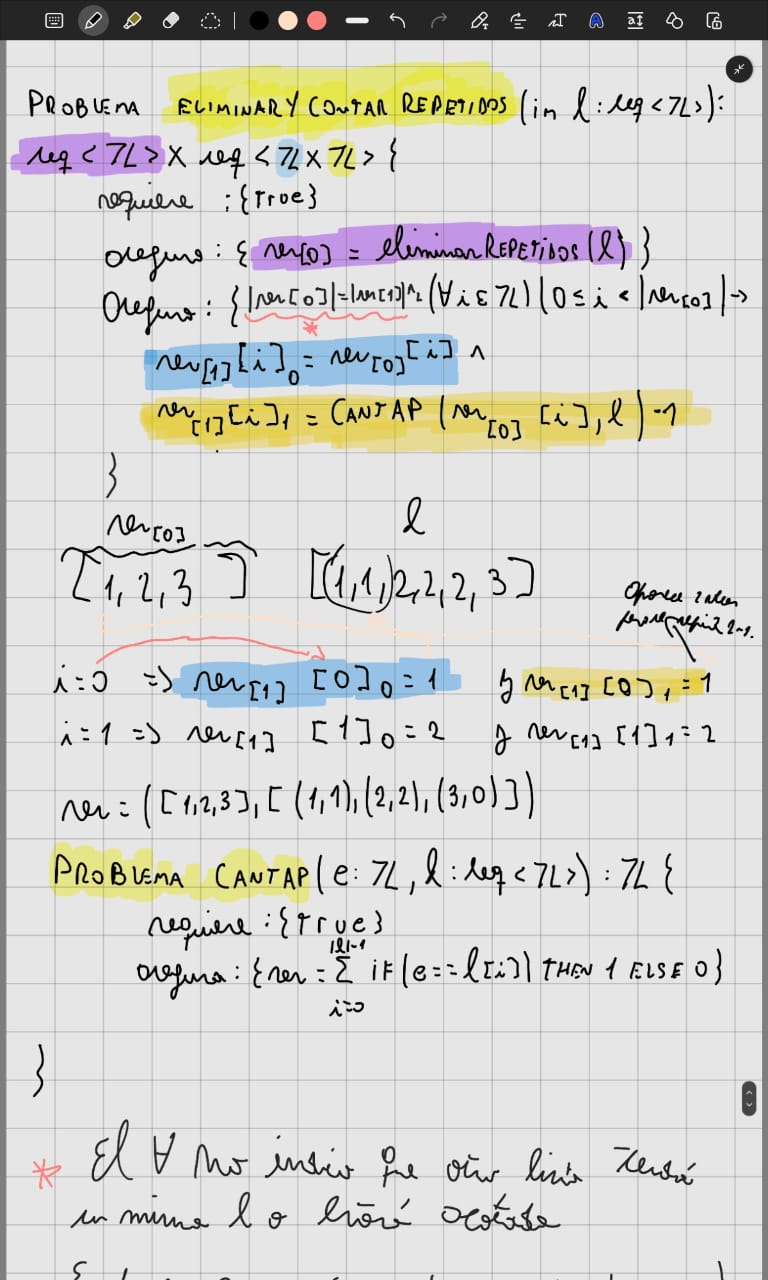 PROBLEMA ELIMINARY CONTAR REPETIDOS (in l : seq<ℤ>):
seq<ℤ> X seq<ℤ x ℤ> {
requiere : {True}
asegura : { res[0] = eliminarREPETIDOS (l) }
Asegura : { |res[0]|=|res[1]| ∧L (∀ i ∈ ℤ) (0 ≤ i < |res[0]| →
res[1][i]0 = res[0][i] ∧
res[1][i]1 = CANTAP (res[0] [i], l) -1
}
res[0] l
[1, 2, 3 ] [(1,1,)2,2,2,3]
Aparece 2 veces
i=0 => res[1] [0]0 = 1 y res[1] [0]1 = 1
i=1 => res[1] [1]0 = 2 y res[1] [1]1 = 2
res = ([1,2,3],[(1,1),(2,2),(3,0)])
PROBLEMA CANTAP (e: ℤ, l : seq<ℤ>) : ℤ {
requiere : {True}
|l|-1
asegura : {res = Σ iF (e == l[i]) THEN 1 ELSE 0}
i=0
}
* El ∀ no que
l o